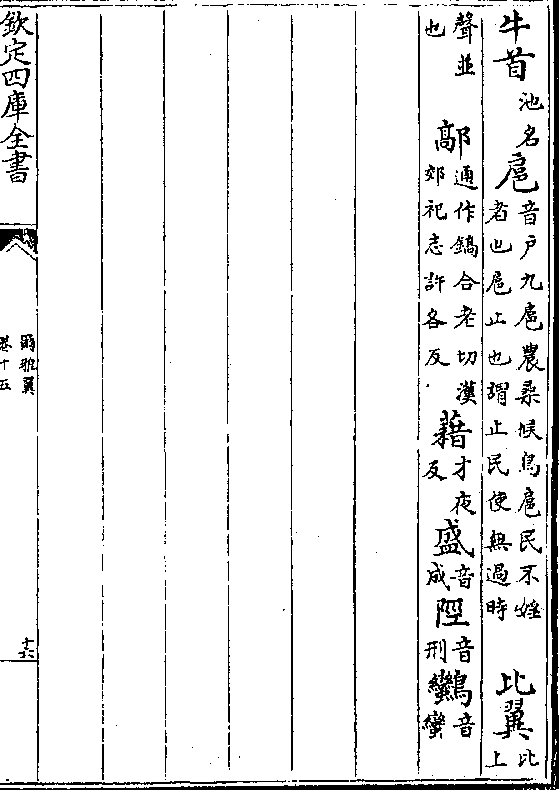 牛首池名扈音戶九扈農桑候鳥扈民不婬者也扈止也謂止民使無過時比翼比上
聲並也鄗通作鎬合老切漢郊祀志許各反藉才夜反盛音成陘音刑䴌音蠻
欽定四庫全書
爾雅翼
卷十五
十六